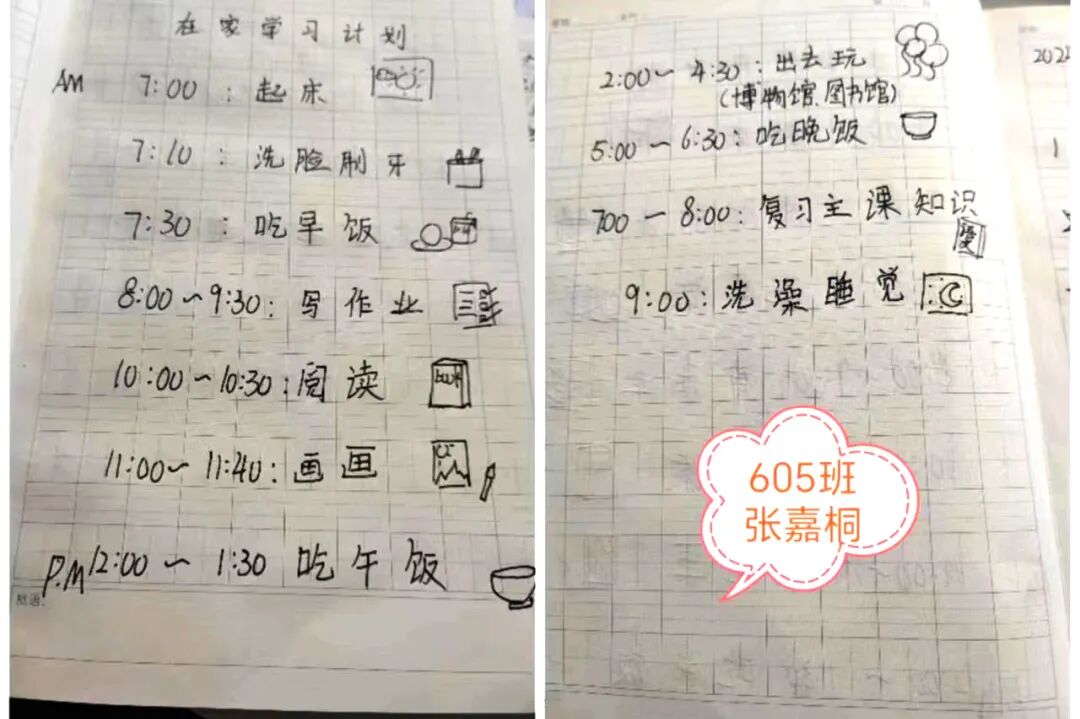 在家学习计划
AM 7:00：起床
7:10：洗脸刷牙
7:30：吃早饭
8:00～9:30：写作业
10:00～10:30：阅读
11:00～11:40：画画
P.M 12:00～1:30 吃午饭
批语：
2:00～4:30：出去玩
(博物馆、图书馆)
5:00～6:30：吃晚饭
700—8:00：复习主课知识
9:00：洗澡睡觉
605班
张嘉桐